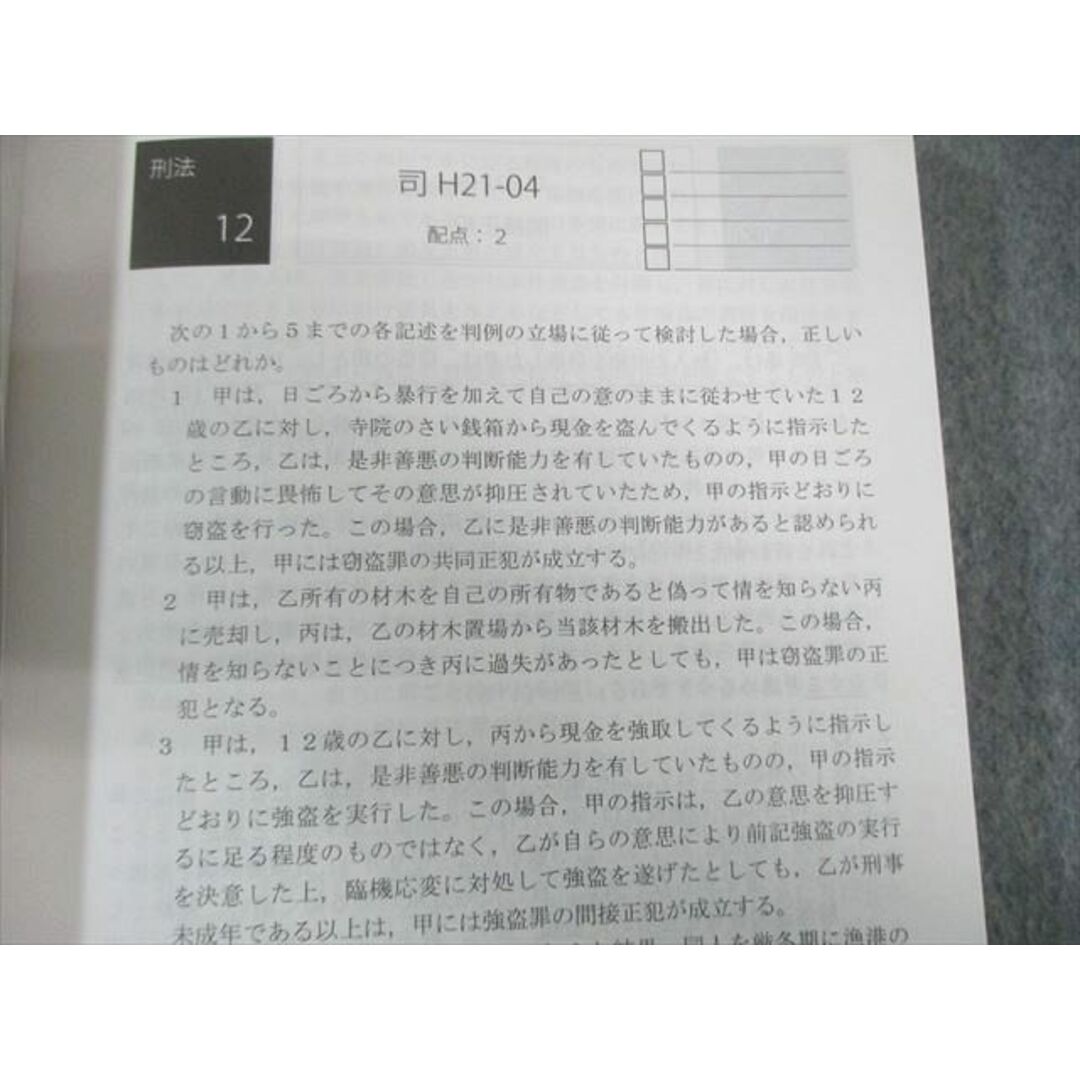 刑法
12
司 H21-04
配点：2
次の１から５までの各記述を判例の立場に従って検討した場合，正しい
ものはどれか。
１　甲は，日ごろから暴行を加えて自己の意のままに従わせていた１２
歳の乙に対し，寺院のさい銭箱から現金を盗んでくるように指示した
ところ，乙は，是非善悪の判断能力を有していたものの，甲の日ごろ
の言動に畏怖してその意思が抑圧されていたため，甲の指示どおりに
窃盗を行った。この場合，乙に是非善悪の判断能力があると認められ
る以上，甲には窃盗罪の共同正犯が成立する。
２　甲は，乙所有の材木を自己の所有物であると偽って情を知らない丙
に売却し，丙は，乙の材木置場から当該材木を搬出した。この場合，
情を知らないことにつき丙に過失があったとしても，甲は窃盗罪の正
犯となる。
３　甲は，１２歳の乙に対し，丙から現金を強取してくるように指示し
たところ，乙は，是非善悪の判断能力を有していたものの，甲の指示
どおりに強盗を実行した。この場合，甲の指示は，乙の意思を抑圧す
るに足る程度のものではなく，乙が自らの意思により前記強盗の実行
を決意した上，臨機応変に対処して強盗を遂げたとしても，乙が刑事
未成年である以上は，甲には強盗罪の間接正犯が成立する。
結果，同人を厳冬期に漁港の